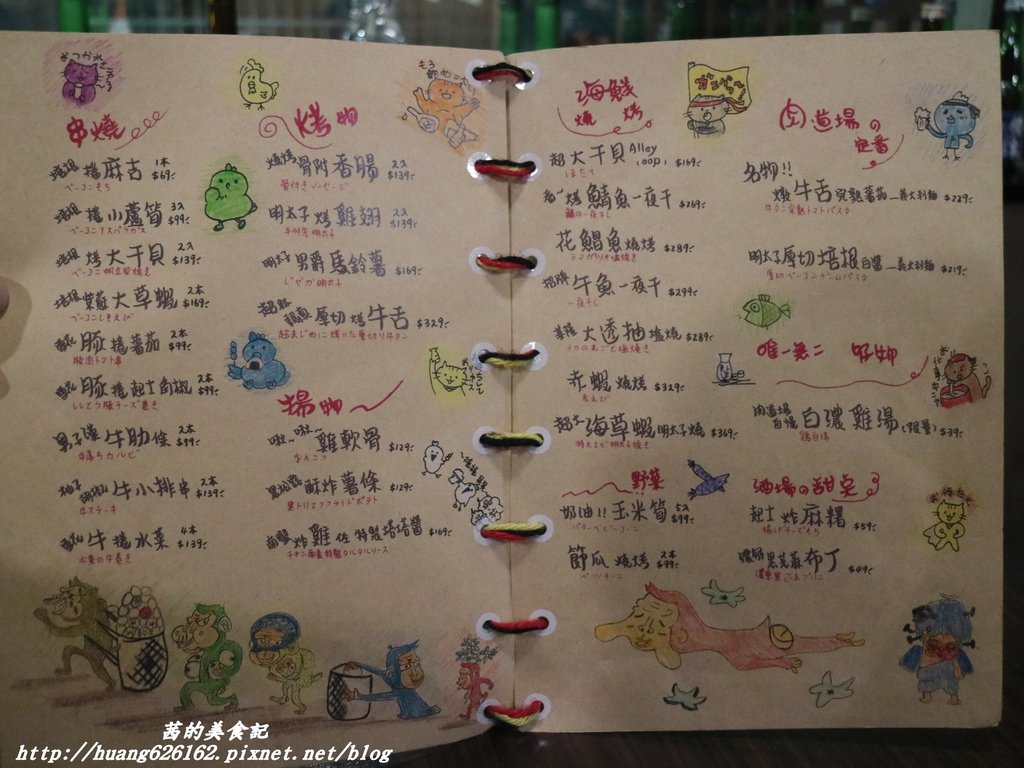 おつかれさまでーる
串燒
培根捲麻吉 1本 $69.-
ベーコンもち
培根捲小蘆筍 3入 $99.-
ベーコンアスパラガス
培根烤大干貝 2入 $139.-
ベーコン帆立貝焼き
培根紫蘇大草蝦 2本 $169.-
ベーコンしそえび
豚捲番茄 2本 $99.-
豚肉トマト串
豚捲起士 2本 $99.-
ししとう豚チーズ巻き
男子漢牛肋條 2本 $99.-
中落ちカルビ
柚子胡椒牛小排串 2本 $139.-
牛ステーキ
牛捲水菜 4本 $139.-
水菜の牛巻き
烤物
燒烤骨附香腸 2入 $139.-
骨付きソーセージ
明太子烤雞翅 2入 $139.-
手羽先明太子
明太子男爵馬鈴薯 $169.-
じゃが明太子
厚切燒烤牛舌 $329.-
超まじめに焼いた厚切り牛タン
揚物
啾~啾~雞軟骨 $129.-
なんこつ
黑松露酥炸薯條 $129.-
黒トリュフフライドポテト
南蠻炸雞佐特製塔塔醬 $169.-
チキン南蛮特製タルタルソース
海鮮燒烤
超大干貝 Alley oop $169.-
ほたて
香煎鯖魚一夜干 $269.-
鯖の一夜干し
花鯽魚燒烤 $289.-
シマガツオ塩焼き
招牌牛魚一夜干 $299.-
一夜干し
大透抽塩燒 $289.-
イカの丸ごと塩焼き
赤蝦燒烤 $329.-
赤えび
超大海草蝦明太子燒 $369.-
特大エビ明太子焼き
野菜
奶油!!玉米筍 5入 $99.-
バターベビーコーン
節瓜燒烤 2本 $99.-
ズッキーニ
ガンバッ!
肉道場の定番
名物!!
燉牛舌完熟番茄義大利麵 $229.-
牛タン完熟トマトパスタ
明太子厚切培根白醬義大利麵 $219.-
厚切ベーコンクリームパスタ
唯一無二 好物
肉道場自慢白濃雞湯(限量) $39.-
鶏白湯
酒場の甜点
起士炸麻糬 $59.-
揚げチーズもち
濃厚黑芝麻布丁 $49.-
濃厚黒ごまプリン
茜的美食記
http://huang626162.pixnet.net/blog